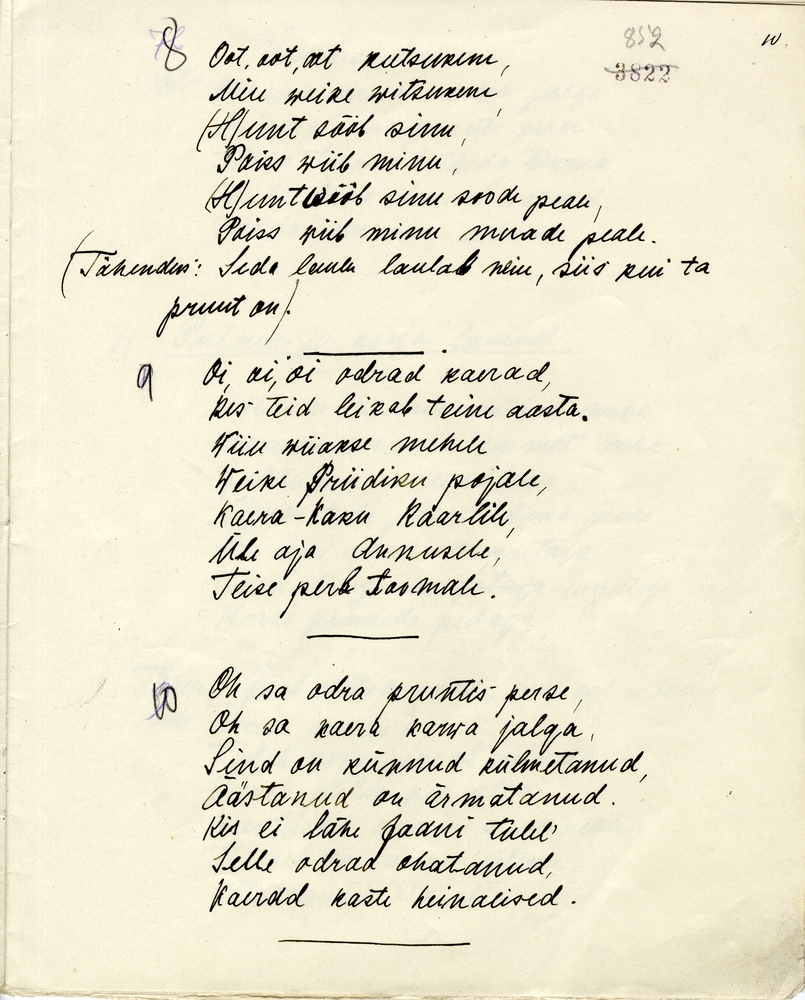 852
3822
10.
8 Oot, oot, oot kutsukem,
Miu weike witsukem,
(H)unt sööb sinu,
Poiss wiib minu,
(H)unt sööb sinu soode peale,
Poiss wiib minu murade peale.
(Tähendus: Seda laulu laulab neiu, siis kui ta
pruut on).
9 Oi, oi, oi odrad kaerad,
Kes teid leikab teine aasta.
Wiiu wiiakse mehele
Weike Priidiku pojale,
Kaera-Kaku Kaarlile,
Üle aja Annusele,
Teise perb Toomale.
10 Oh sa odra pruntis perse,
Oh sa kaera karwa jalga,
Sind on künnud külmetanud,
Äästanud on ärmatanud.
Kis ei lähe Jaani tulel'
Selle odrad ohatanud,
Kaerad kaste heinalised.